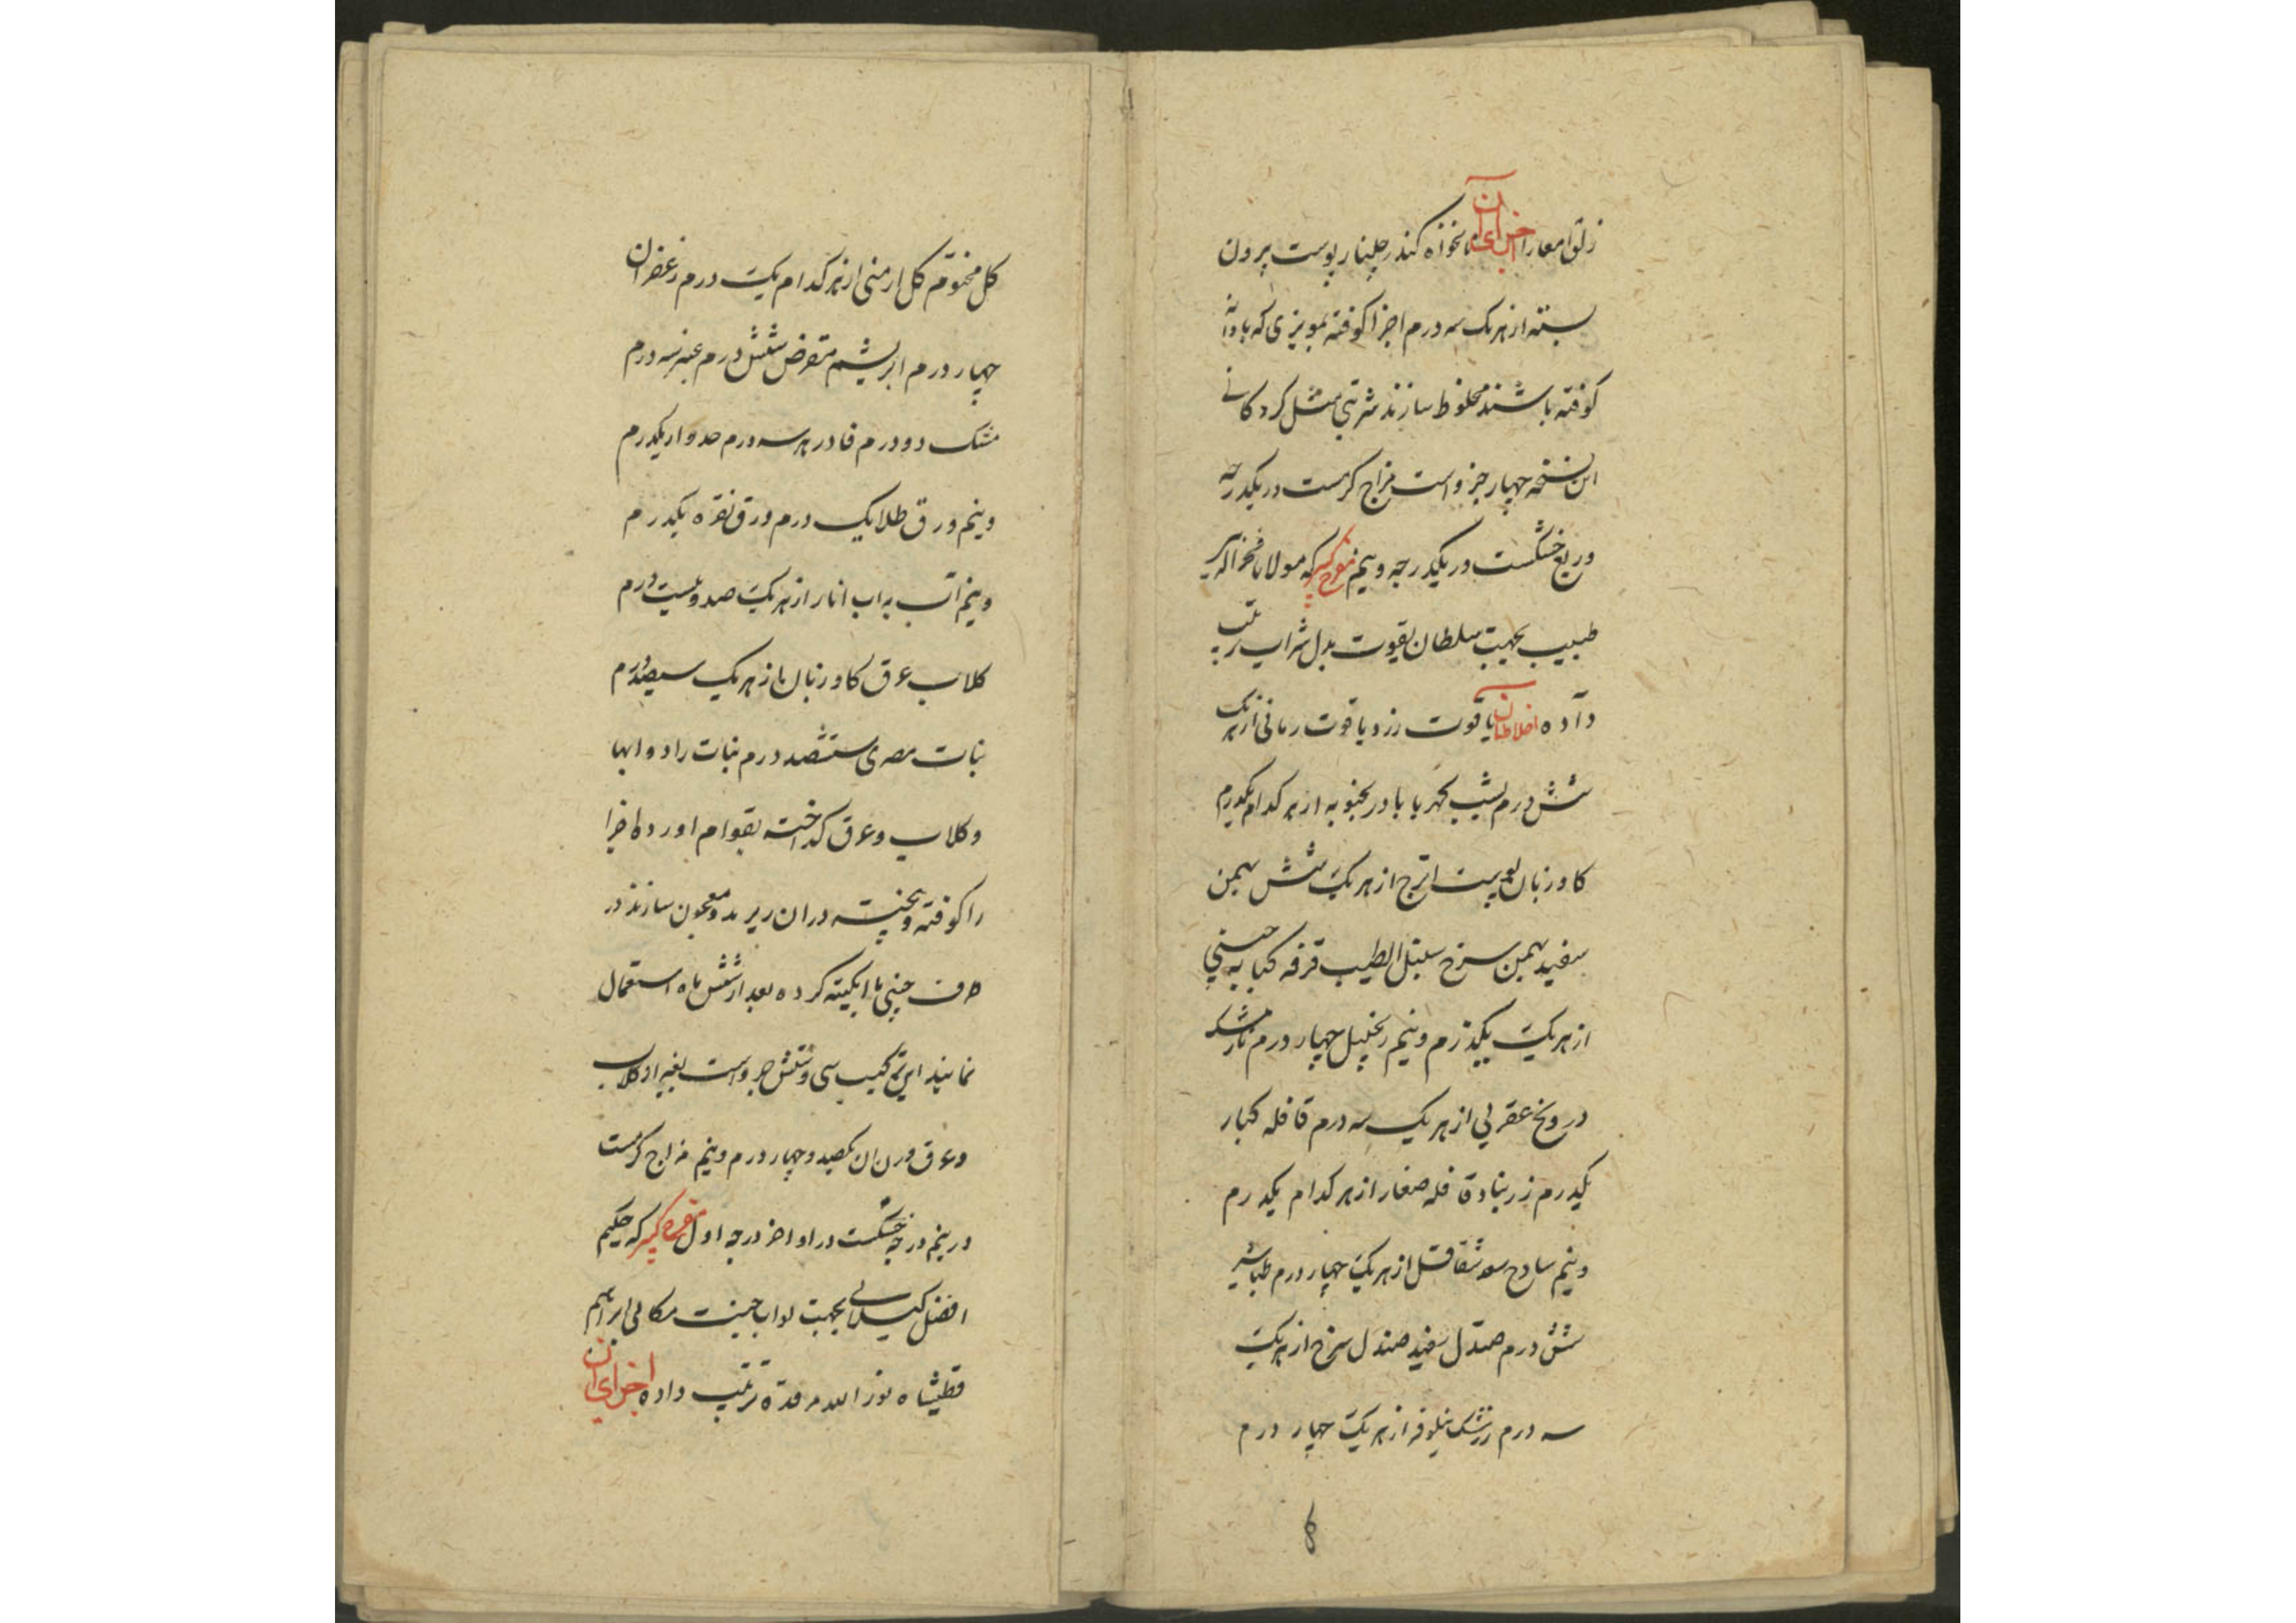 زلق امعا را اجزای آن نانخواه کندر جلنار پوست بیرون
پسته از هر یک سه درم اجزا کوفته بمویزی که با دانه
کوفته باشند مخلوط سازند شربتی مثل کردکانی
این نسخه چهار جزو است مزاج گرمست در یکدرجه
و ربع خشکست در یکدرجه و نیم مفرح کبیر که مولانا فخرالدین
طبیب بجهت سلطان یعقوب بدل شراب ترتیب
داده اخلاط آن یاقوت زرد یاقوت رمانی از هر یک
شش درم یشب کهربا بادرنجبویه از هر کدام یکدرم
کاوزبان پوست اترج از هر یک شش بهمن
سفید بهمن سرخ سنبل الطیب قرفه کبابه چینی
از هر یک یکدرم و نیم زنجبیل چهار درم نارمشک
درونج عقربی از هر یک سه درم قاقله کبار
یکدرم زرنباد قاقله صغار از هر کدام یکدرم
و نیم سادج سعد شقاقل از هر یک چهار درم طباشیر
شش درم صندل سفید صندل سرخ از هر یک
سه درم زرشک نیلوفر از هر یک چهار درم
کل مختوم کل ارمنی از هر کدام یک درم زعفران
چهار درم ابریشم مقرض شش درم عنبر سه درم
مشک دو درم فادزهر سه درم جدوار یکدرم
و نیم ورق طلا یک درم ورق نقره یکدرم
و نیم آب به اب انار از هر یک صد و بیست درم
کلاب عرق کاوزبان از هر یک سیصد درم
نبات مصری ششصد درم نبات را در ابها
و کلاب و عرق کداخته بقوام اورده اجزا
را کوفته و بیخته در ان ریزند و معجون سازند در
ظرف چینی یا ابکینه کرده بعد از شش ماه استعمال
نمایند این ترکیب سی و شش جزو است بغیر از کلاب
و عرق وزن ان یکصد و چهار درم و نیم مزاج گرمست
در نیم درجه خشکست در اواخر درجه اول مفرح کبیر که حکیم
افضل کیلانی بجهت نواب جنت مکانی ابراهیم
قطبشاه نور الله مرقده ترتیب داده اجزای آن